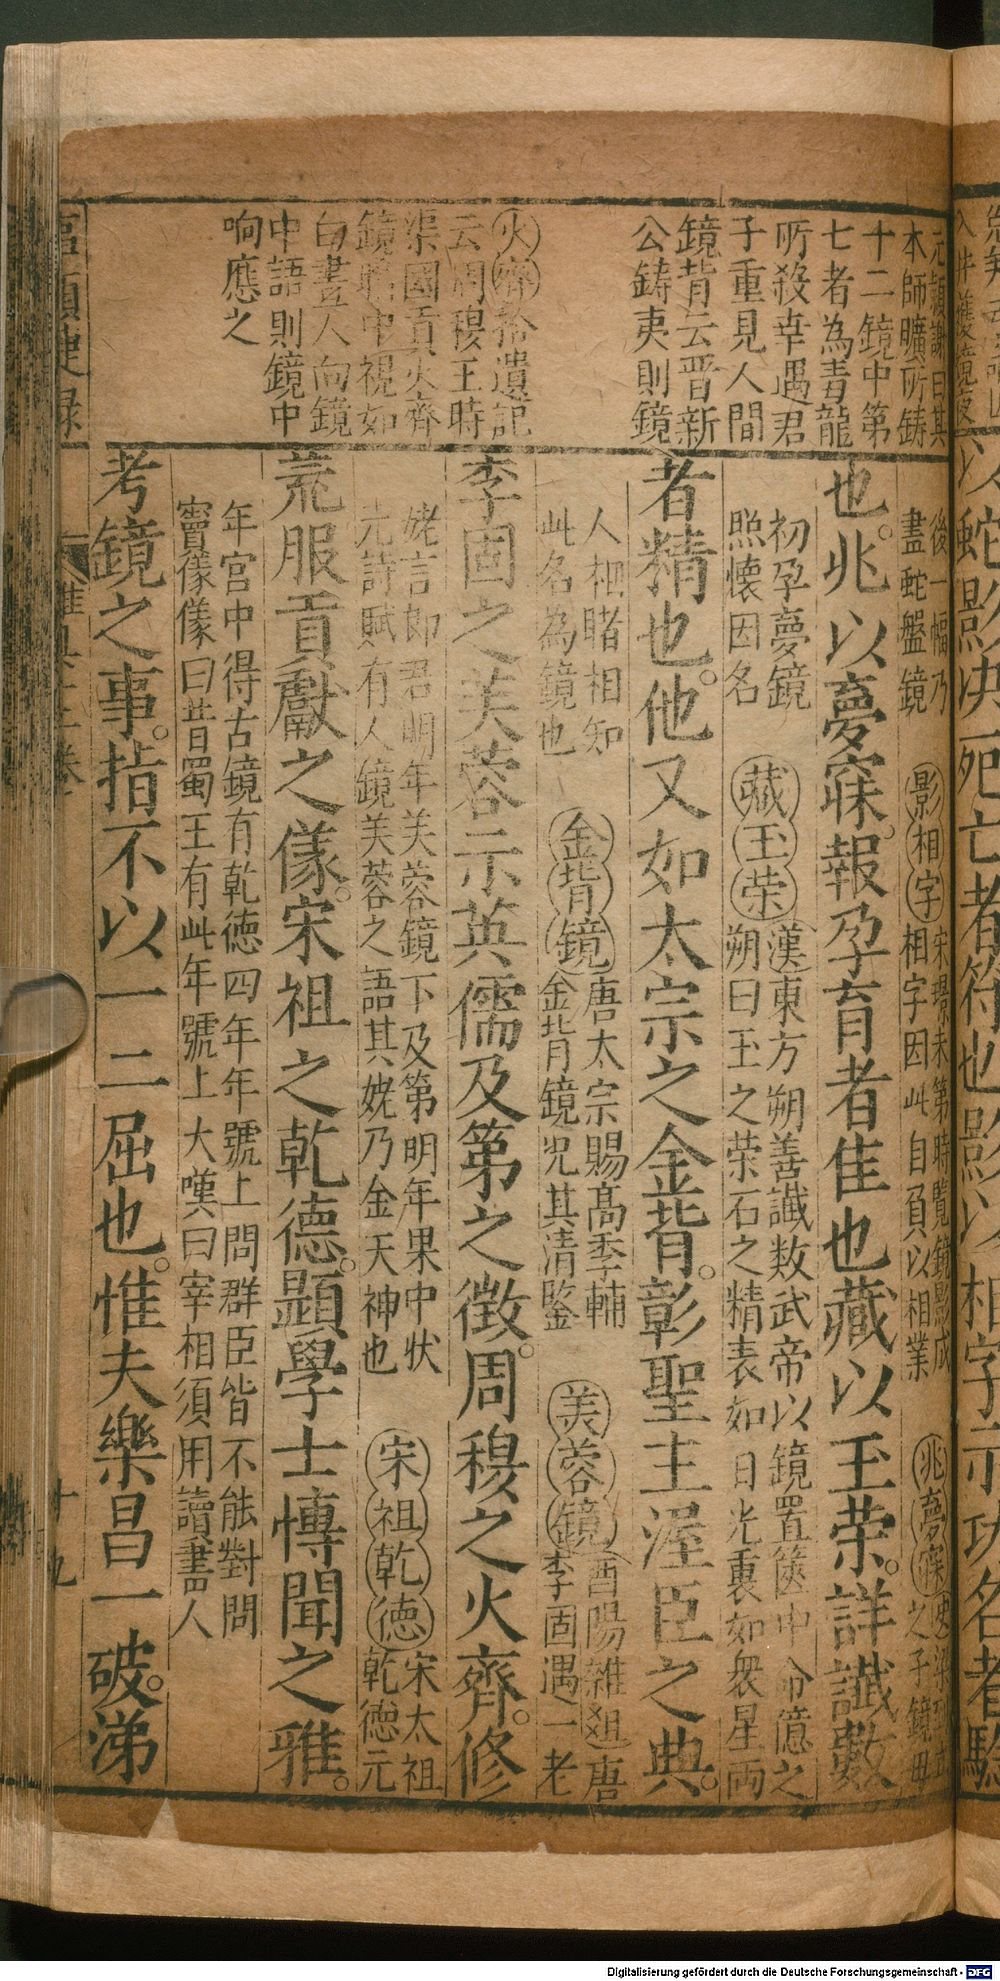 元穎謝曰其
本師曠所鑄
十二鏡中第
七者為青龍
所殺幸遇君
子重見人間
鏡背云晋新
公鑄夷則鏡
火齊拾遺記
云周穆王時
渠國貢火齊
鏡暗中視如
白晝人向鏡
中語則鏡中
响應之
後一幅乃
畫蛇盤鏡
影相字
宋璟未第時覧鏡影成
相字因此自負以相業
兆夢寐
之子鏡毋
也。兆以夢寐。報孕育者佳也藏以玉荣。詳讖數
初孕夢鏡
照懷因名
藏玉荣
漢東方朔善讖数武帝以鏡置篋中令億之
朔曰玉之荣石之精表如日光裏如衆星两
者精也。他又如太宗之金背。彰聖主渥臣之典。
人相睹相知
此名為鏡也
金背鏡
唐太宗賜高季輔
金背鏡况其清鑒
芙蓉鏡
酉陽雜俎唐
李固遇一老
李固之芙蓉示英儒及第之徴。周穆之火齊。修
姥言郎君明年芙蓉鏡下及第明年果中状
元詩賦有人鏡芙蓉之語其姥乃金天神也
宋祖乾德
宋太祖
乾德元
荒服貢獻之儀。宋祖之乾德。顕學士博聞之雅。
年宫中得古鏡有乾德四年年號上問群臣皆不能對問
竇儀儀曰昔蜀王有此年號上大嘆曰宰相須用讀書人
考鏡之事。指不以一二屈也。惟夫樂昌一破。涕
十九
以蛇影决死亡者符也影以相字示功名者驗
Digitalisierung gefördert durch die Deutsche Forschungsgemeinschaft - DFG